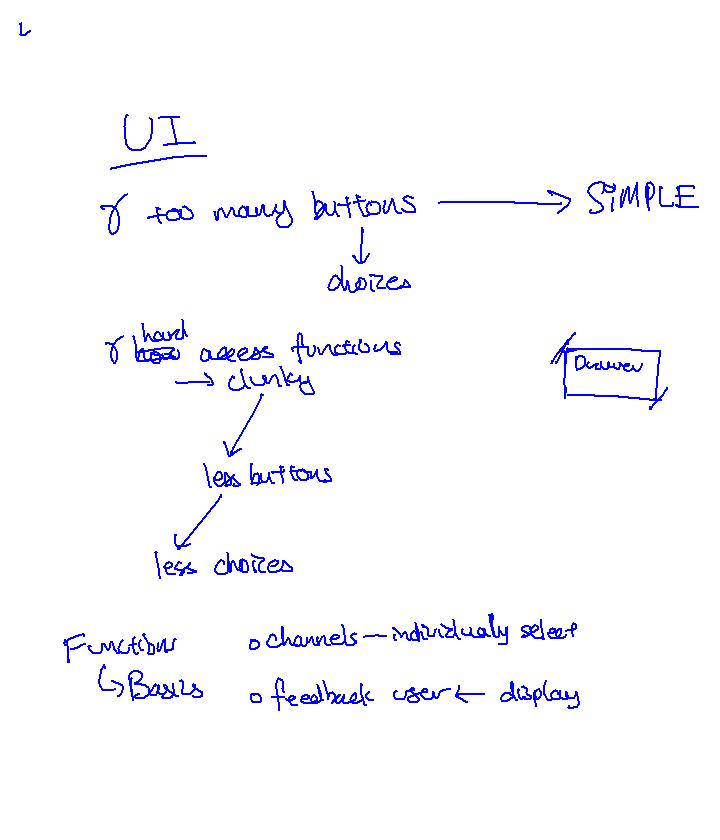 UI
too many buttons → SIMPLE
↓
choices
hard access functions
→ clunky
less buttons
less choices
Function
↳ Basics
o channels — individualy select
o feedback user ← display